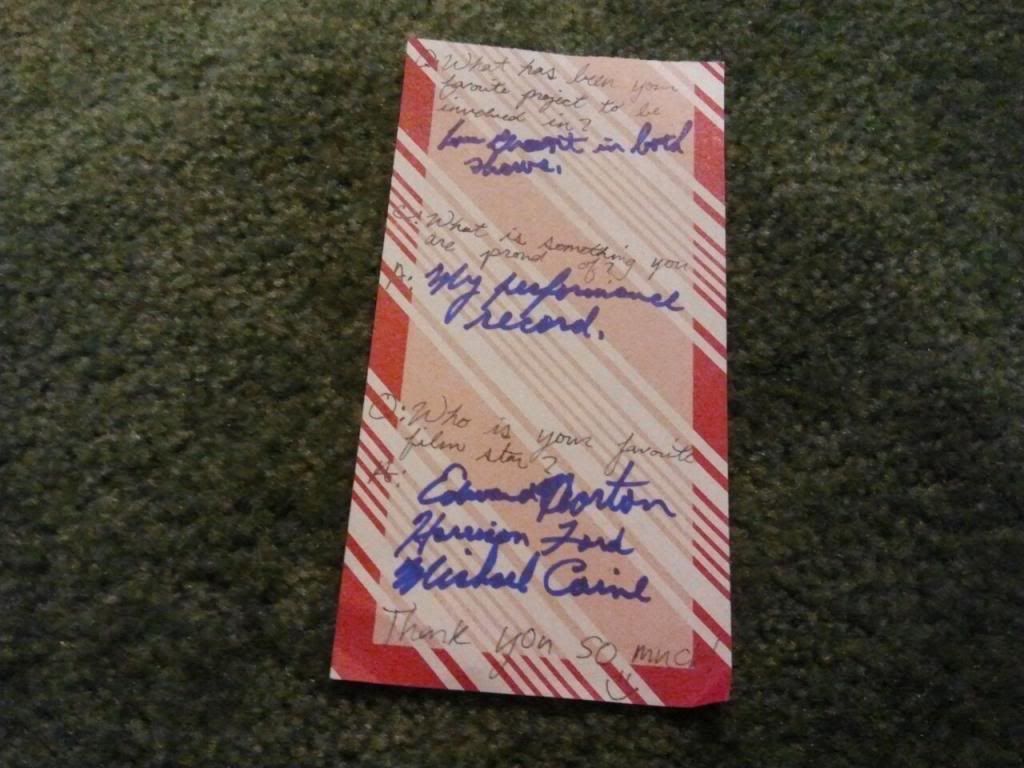 Q: What has been your
favorite project to be
involved in?
Lou Grant in both
shows.
Q: What is something you
are proud of?
A: My performance
record.
Q: Who is your favorite
film star?
A:
Edward Norton
Harrison Ford
Michael Caine
Thank you so much!